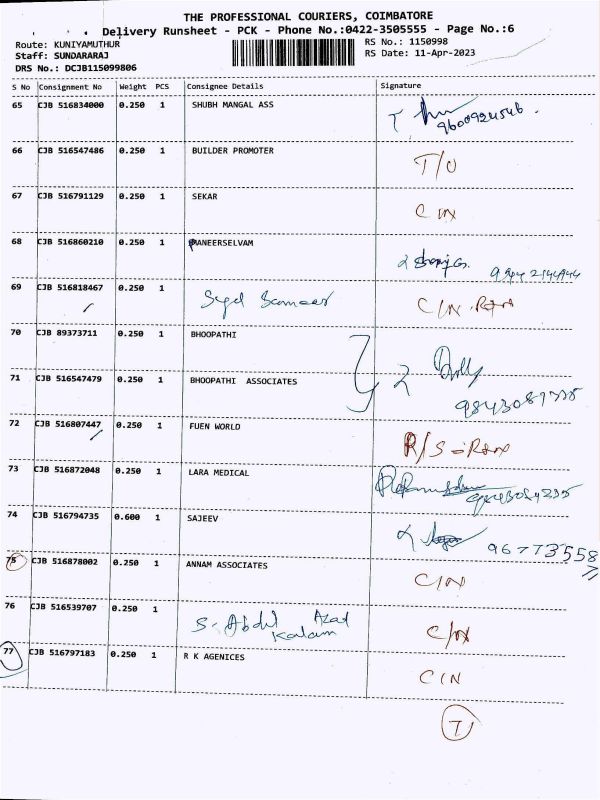 THE PROFESSIONAL COURIERS, COIMBATORE
Delivery Runsheet - PCK - Phone No.:0422-3505555 - Page No.:6
Route: KUNIYAMUTHUR RS No.: 1150998
Staff: SUNDARARAJ RS Date: 11-Apr-2023
DRS No.: DCJB115099806
S No Consignment No Weight PCS Consignee Details Signature
65 CJB 516834000 0.250 1 SHUBH MANGAL ASS
9600924546
66 CJB 516547486 0.250 1 BUILDER PROMOTER T/O
67 CJB 516791129 0.250 1 SEKAR C IN
68 CJB 516860210 0.250 1 PANEERSELVAM
69 CJB 516818467 0.250 1 Syed Sameer C/N
70 CJB 89373711 0.250 1 BHOOPATHI
71 CJB 516547479 0.250 1 BHOOPATHI ASSOCIATES
72 CJB 516807447 0.250 1 FUEN WORLD R/S
73 CJB 516872048 0.250 1 LARA MEDICAL
74 CJB 516794735 0.600 1 SAJEEV 96773558
75 CJB 516878002 0.250 1 ANNAM ASSOCIATES C/N
76 CJB 516539707 0.250 1 S. Abdul Azad Kalam C/N
77 CJB 516797183 0.250 1 R K AGENICES C/N